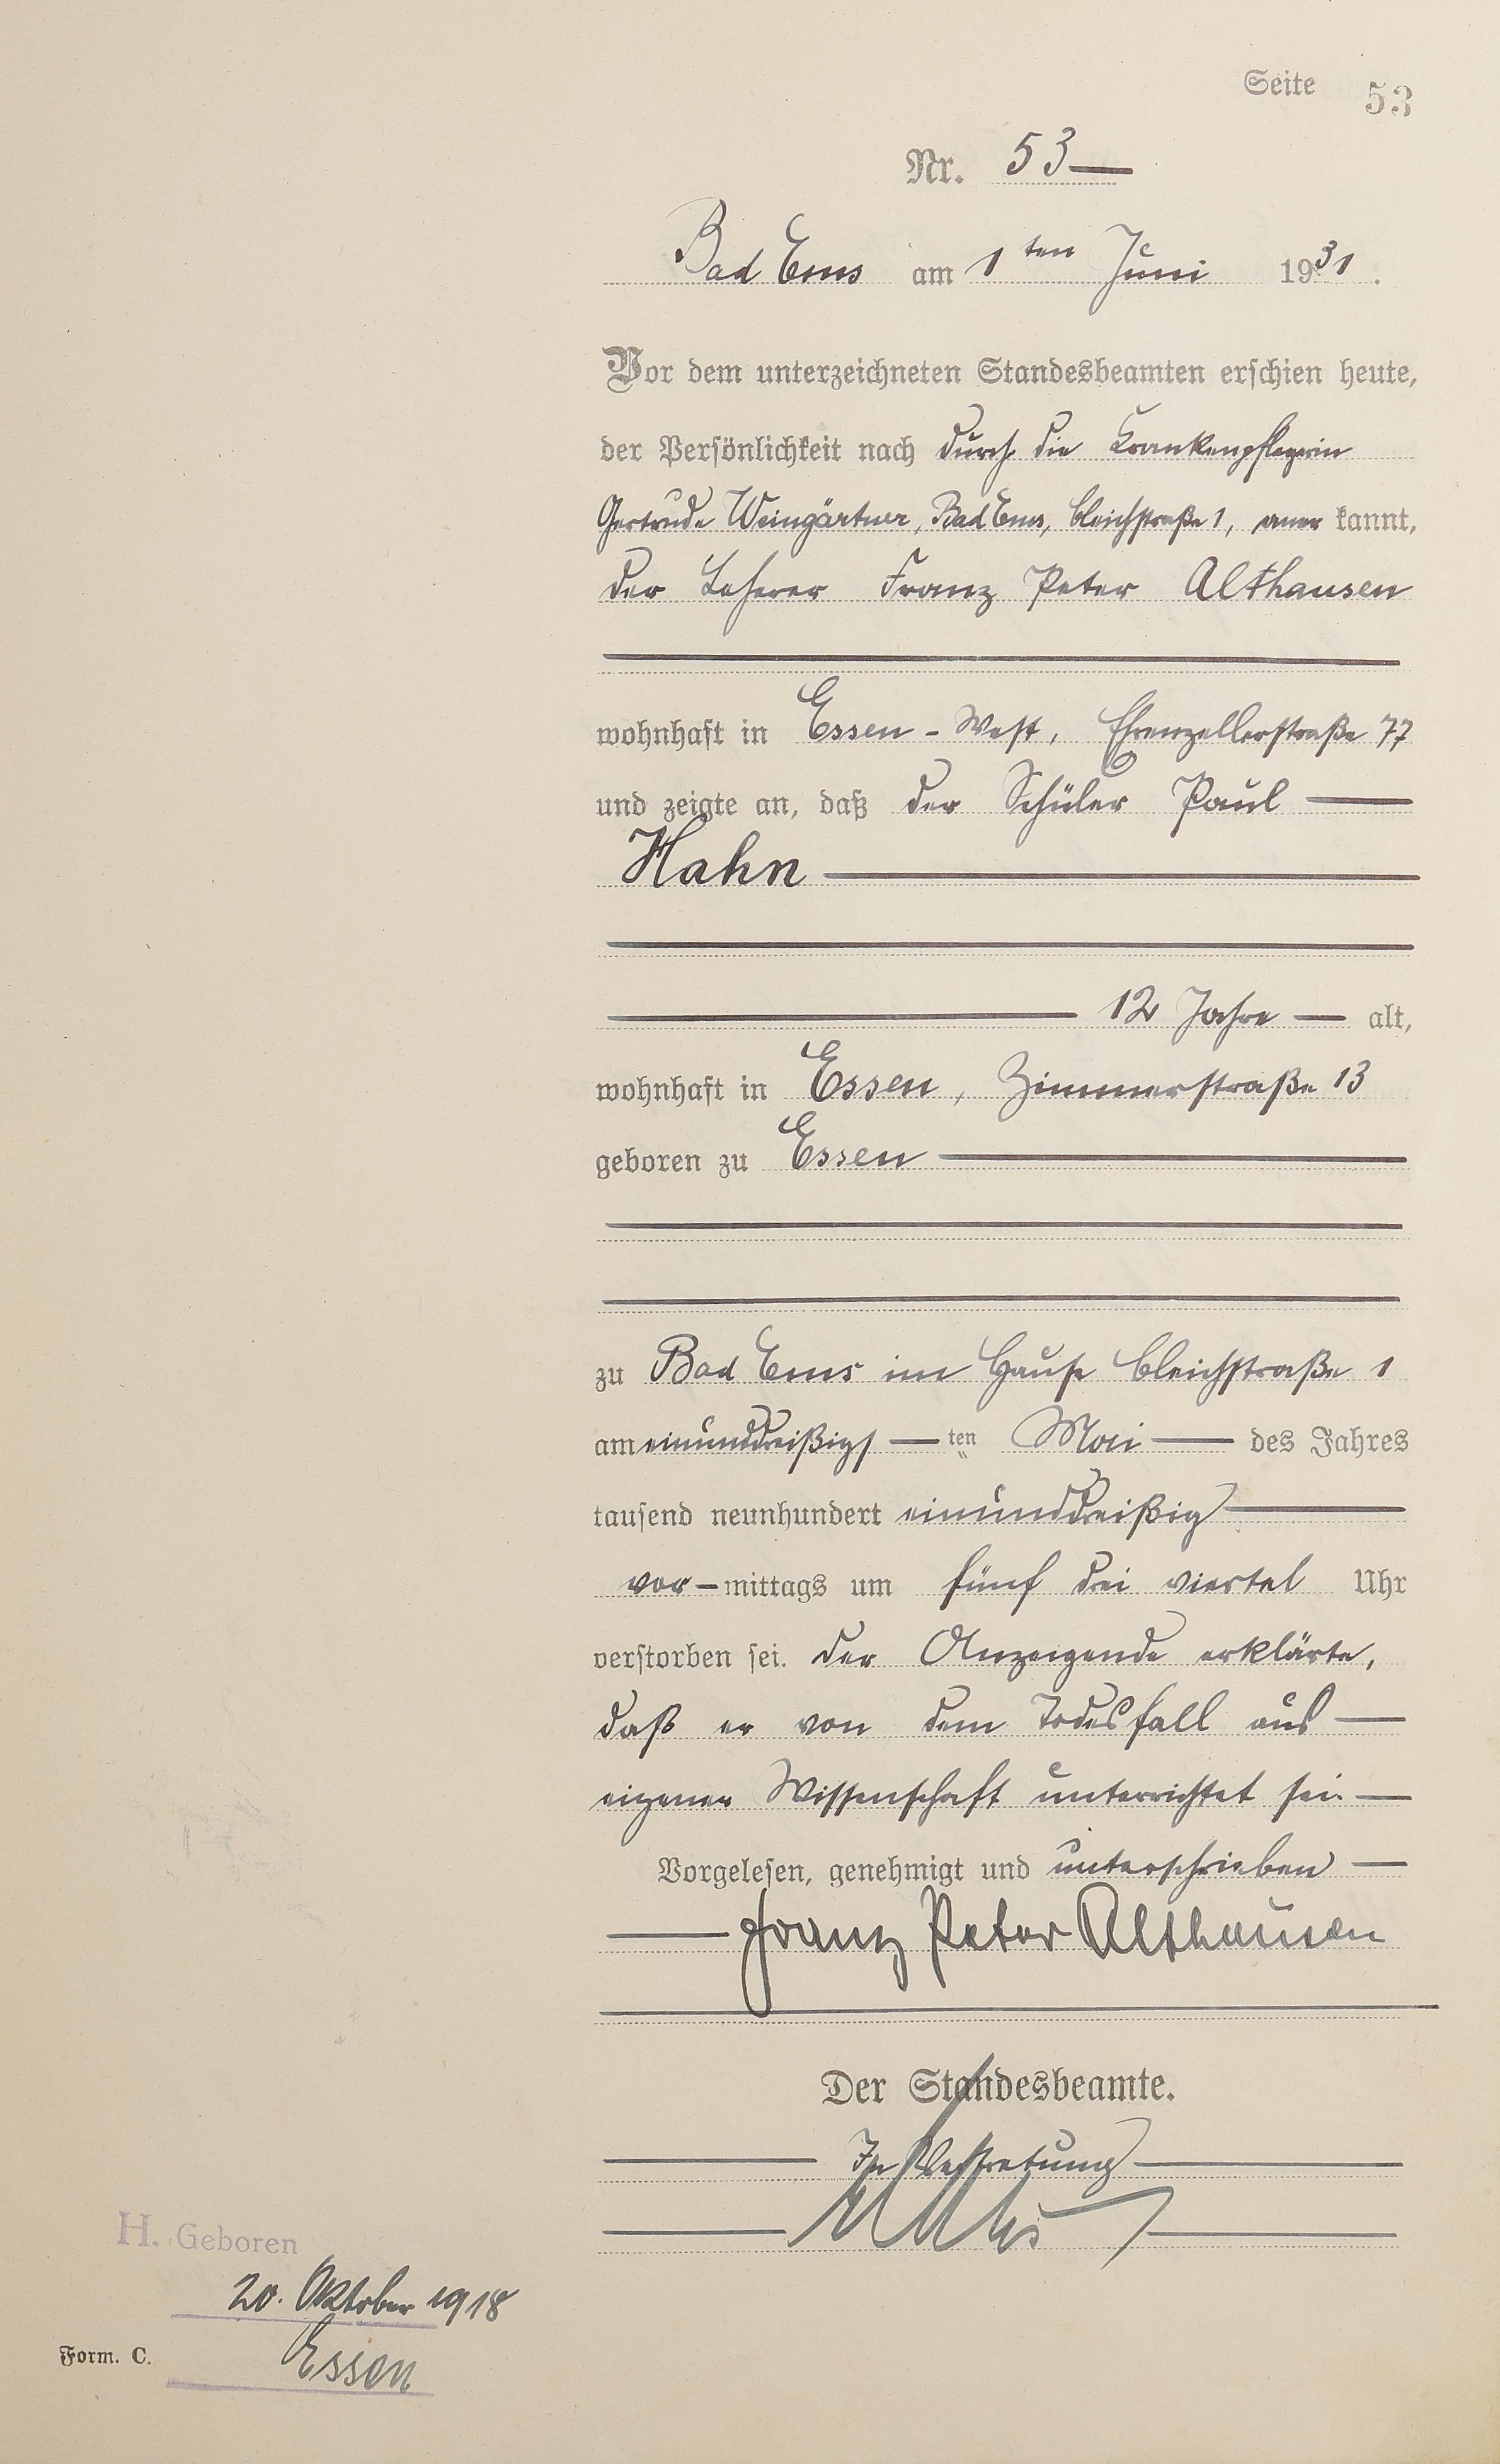 Seite 53
Nr. 53
Bad Ems am 1ten Juni 1931.
Vor dem unterzeichneten Standesbeamten erschien heute,
der Persönlichkeit nach durch die Krankenpflegerin
Gertrude Weingärtner, Bad Ems, Bleichstraße 1, aner kannt,
der Lehrer Franz Peter Althausen
wohnhaft in Essen - West, Ehrenzellerstraße 77
und zeigte an, daß der Schüler Paul
Hahn
12 Jahre alt,
wohnhaft in Essen, Zimmerstraße 13
geboren zu Essen
zu Bad Ems im Hause Bleichstraße 1
am einunddreißigs ten Mai des Jahres
tausend neunhundert einunddreißig
vor-mittags um fünf drei viertel Uhr
verstorben sei. Der Anzeigende erklärte,
daß er von dem Todesfall aus
eigener Wissenschaft unterrichtet sei.
Vorgelesen, genehmigt und unterschrieben
Franz Peter Althausen
Der Standesbeamte.
In Vertretung
H. Geboren
20. Oktober 1918
Form. C.
Essen